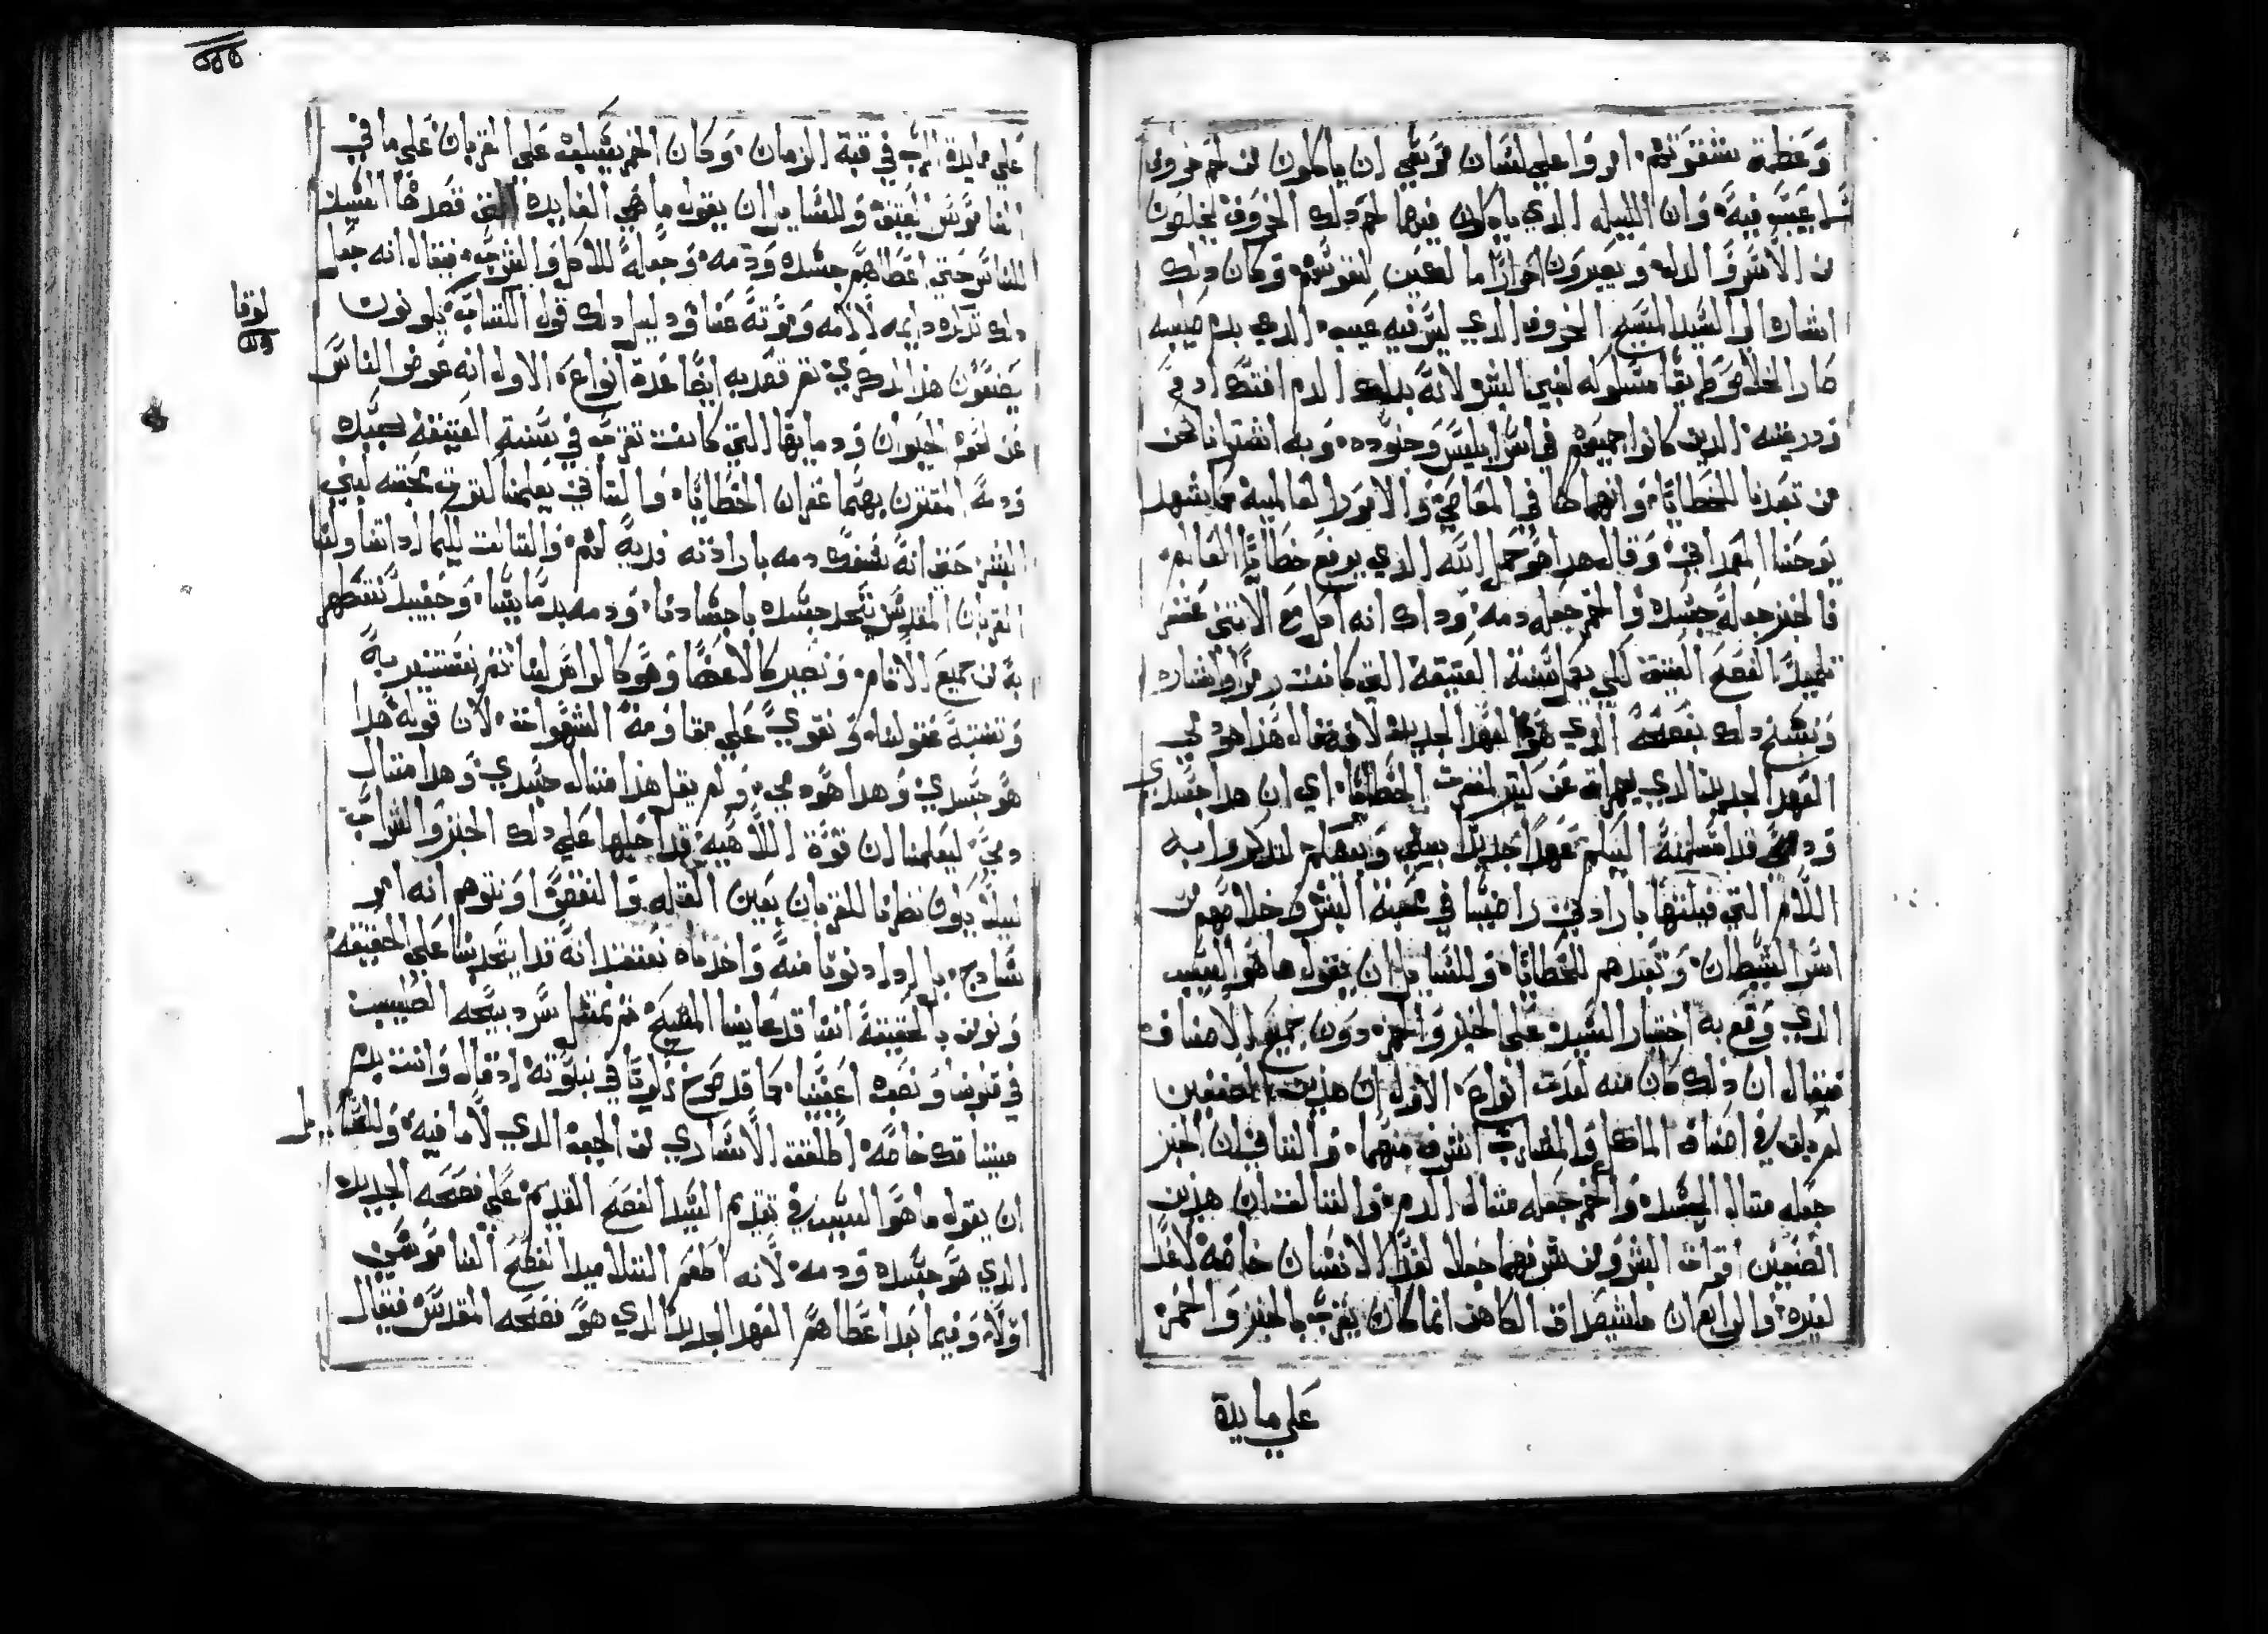 وعظمة شقوتهم. امروا علي لسان موسي ان ياكلون من لحم خروف
لا عيب فيه. وان الليله الدي ياكلون فيها لحم دلك الخروف يخلصون
من الاسر والدله ويصيرون احرارا مالكين لنفوسهم وكان دلك
اشاره الي السيد المسيح الخروف الدي ليس فيه عيب. الدي بدم صليبه
صار الخلاص طريقا مسلوكه لجميع البشر لانه بدلك الدم افتك ادم
ودريته الدين كانوا جميعهم في اسر ابليس وجنوده. وبه اشترانا نحن
من تعبدنا للخطايا. وانهماكنا في المعاصي والامور العالميه كما يشهد
يوحنا المعمداني. وقال هدا هو حمل الله الدي يرفع خطايا العالم.
فالخبز جعله جسده والخمر جعله دمه. ودلك انه اكل مع الاثني عشر
تلميدا الفصح العتيق لكي يكمل السنة العتيقه التي كانت رمزا واشاره
وينسخ دلك بفصحه الدي هو العهد الجديد لانه قال هدا هو دمي
العهد الجديد الدي يهراق عن كثير لمغفرت الخطايا. اي ان هدا جسدي
ودمي قد اسلمته اليكم عهدا جديدا بيني وبينكم لتدكروا به
الالام التي قبلتها بارادتي راضيا في محبة البشر وخلاصهم من
اسر الشيطان. وتعبدهم للخطايا. وللسايل ان يقول ما هو السبب
الدي وقع به اختيار السيد علي الخبز والخمر. دون جميع الاصناف
فيقال ان دلك كان منه لعدت انواع. الاول ان هدين الصنفين
لم يكن في اصناف الماكل والمشارب اشرف منهما. والثاني ان الخبز
جعله مثال الجسد. والخمر جعله مثال الدم. والثالث ان هدين
الصنفين اقوات البشر ومن شرفهما جعلا لغدا الانسان خاصه لا غدا
لغيره. والرابع ان ملشيصداق الكاهن انما كان يقرب بالخبز والخمر.
علي مايدة
علي مايدة الرب في قبة الزمان. وكان الخمر يسكب علي القربان علي ما في
الناموس العتيق وللسايل ان يقول ما هي الفايده التي قصدها السيد
للناس حتي اعطاهم جسده ودمه. وجعله للاكل والشرب. فيقال انه جعل
دلك تدكره دايمه لالامه وموته عنا ودليل دلك قول الكتاب يكونون
يصنعون هدا لدكري ثم قصد به ايضا عدة انواع. الاول انه عوض الناس
عن لحوم الحيوان ودمايها التي كانت تقرب في السنة العتيقه جسده
ودمه المقترن بهما غفران الخطايا. والثاني يعلمنا لنوع محبته لبني
البشر حتي انه سفك دمه بارادته فدية لهم. والثالث ليلما ادا تناولنا
القربان المقدس يتحد جسده باجسادنا. ودمه بدماينا. وحينيد نتطهر
به من جميع الاثام. ونصير كالاعضا وهو كالراس لنا ثم نستنير به
وتنتبه عقولنا. ونقوي علي مقاومة الشهوات. لان قوله هدا
هو جسدي وهدا هو دمي. ولم يقل هدا مثال جسدي وهدا مثال
دمي. ليعلمنا ان قوة اللاهيه قد احلها علي دلك الخبز والشراب
ليلا يكون نظرنا للقربان بعين القله والنقص او نتوهم انه امر
سادج. بل ادا دنونا منه واخدناه نعتقد انه قد اتحد بنا علي الحقيقه.
ونومن بالحقيقة اننا قد عاينا المسيح. ثم نمتثل سر دبيحه الصليب
في نفوسنا ونصب اعيننا. كما قد صرخ زكريا في نبوته اد قال وانت بدم
ميثاقك خاصه اطلقت الاساري من الجب الدي لا ما فيه. وللسايل
ان يقول ما هو السبب في تقديم السيد الفصح القديم علي فصحه الجديد
الدي هو جسده ودمه. لانه اطعم التلاميد الفصح الناموسي
اولا. وفيما بعد اعطاهم العهد الجديد الدي هو فصحه المقدس فيقال
لوقا